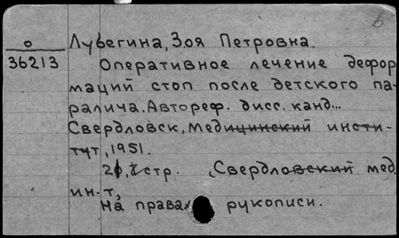 б
о Лубегина, Зоя Петровна.
36213 Оперативное лечение дефор
маций стоп после детского па-
ралича. Автореф. дисс. канд...
Свердловск, Медицинский инсти-
тут, 1951.
стр. (Свердловский мед.
ин-т,
На правах рукописи.